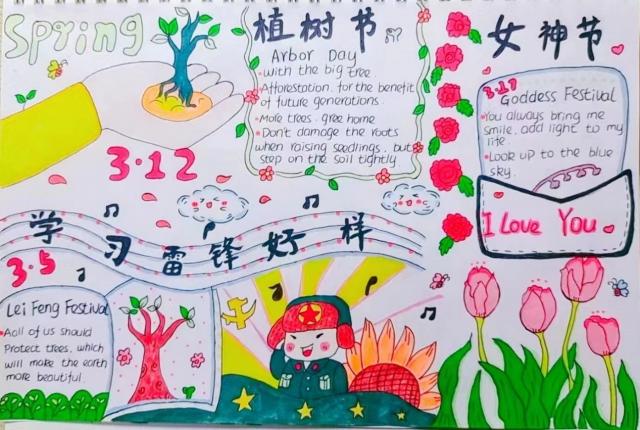 Spring
植树节
Arbor Day
With the big tree
Afforestation. for the benefit
of future generations.
More trees. gree home
Don't damage the roots
when raising seedlings. but
step on the soil tightly
3.12
女神节
Goddess Festival
You always bring me
smile. add light to my
life.
Look up to the blue
sky.
I Love You
学习雷锋好样
3.5
Lei Feng Festival
Aall of us should
Protect trees. which
will make the earth
more beautiful